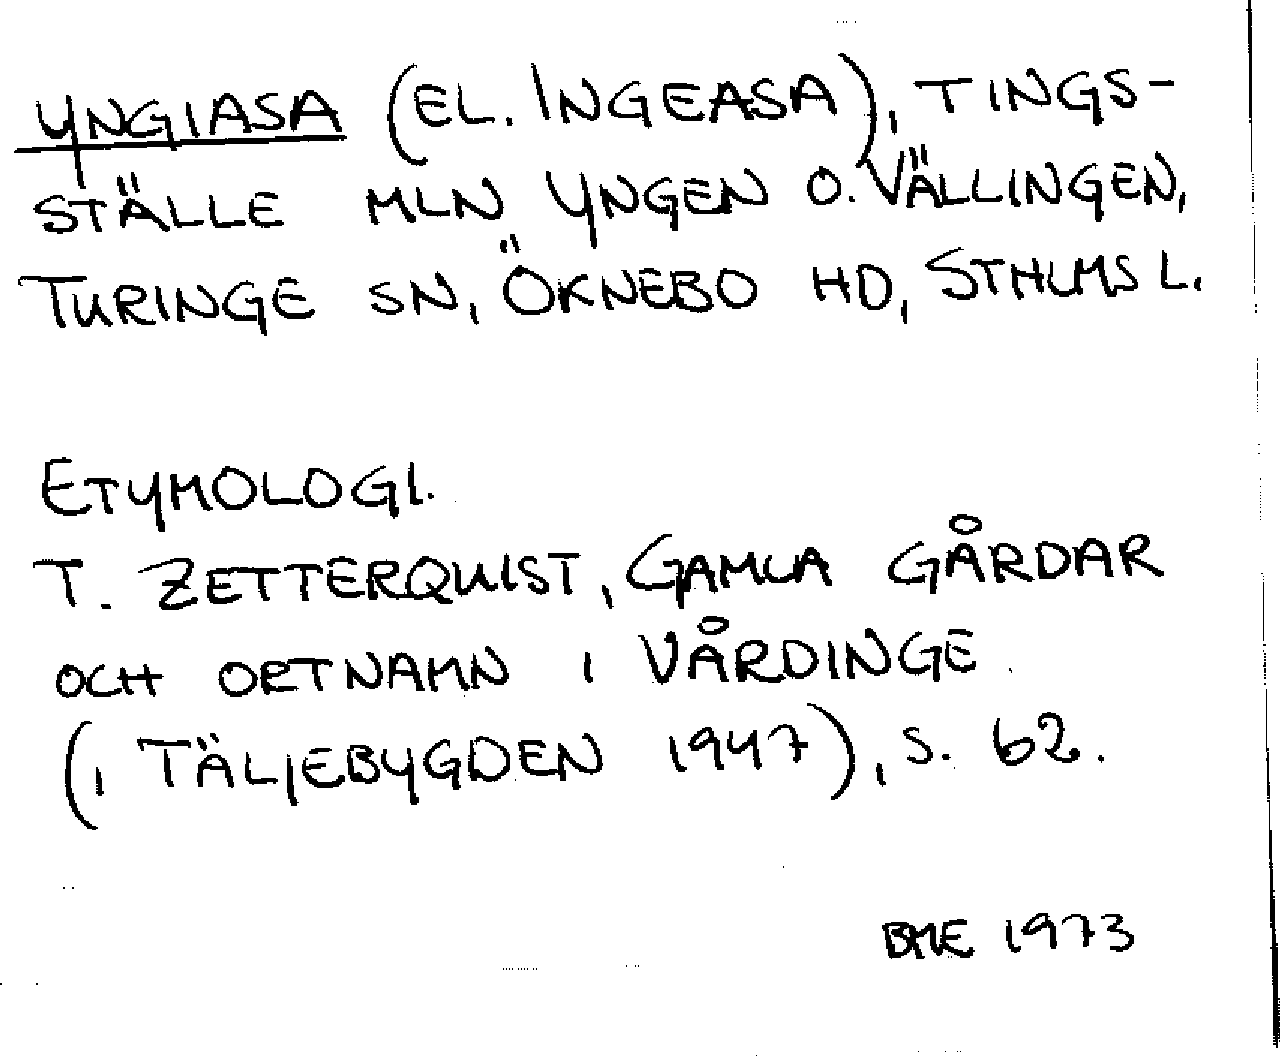 YNGIASA (EL. INGEASA), TINGS-
STÄLLE MLN YNGEN O. VÄLLINGEN,
TURINGE SN, ÖKNEBO HD, STHLMS L.
ETYMOLOGI.
T. ZETTERQUIST, GAMLA GÅRDAR
OCH ORTNAMN I VÅRDINGE
(I TÄLJEBYGDEN 1947), S. 62.
BME 1973